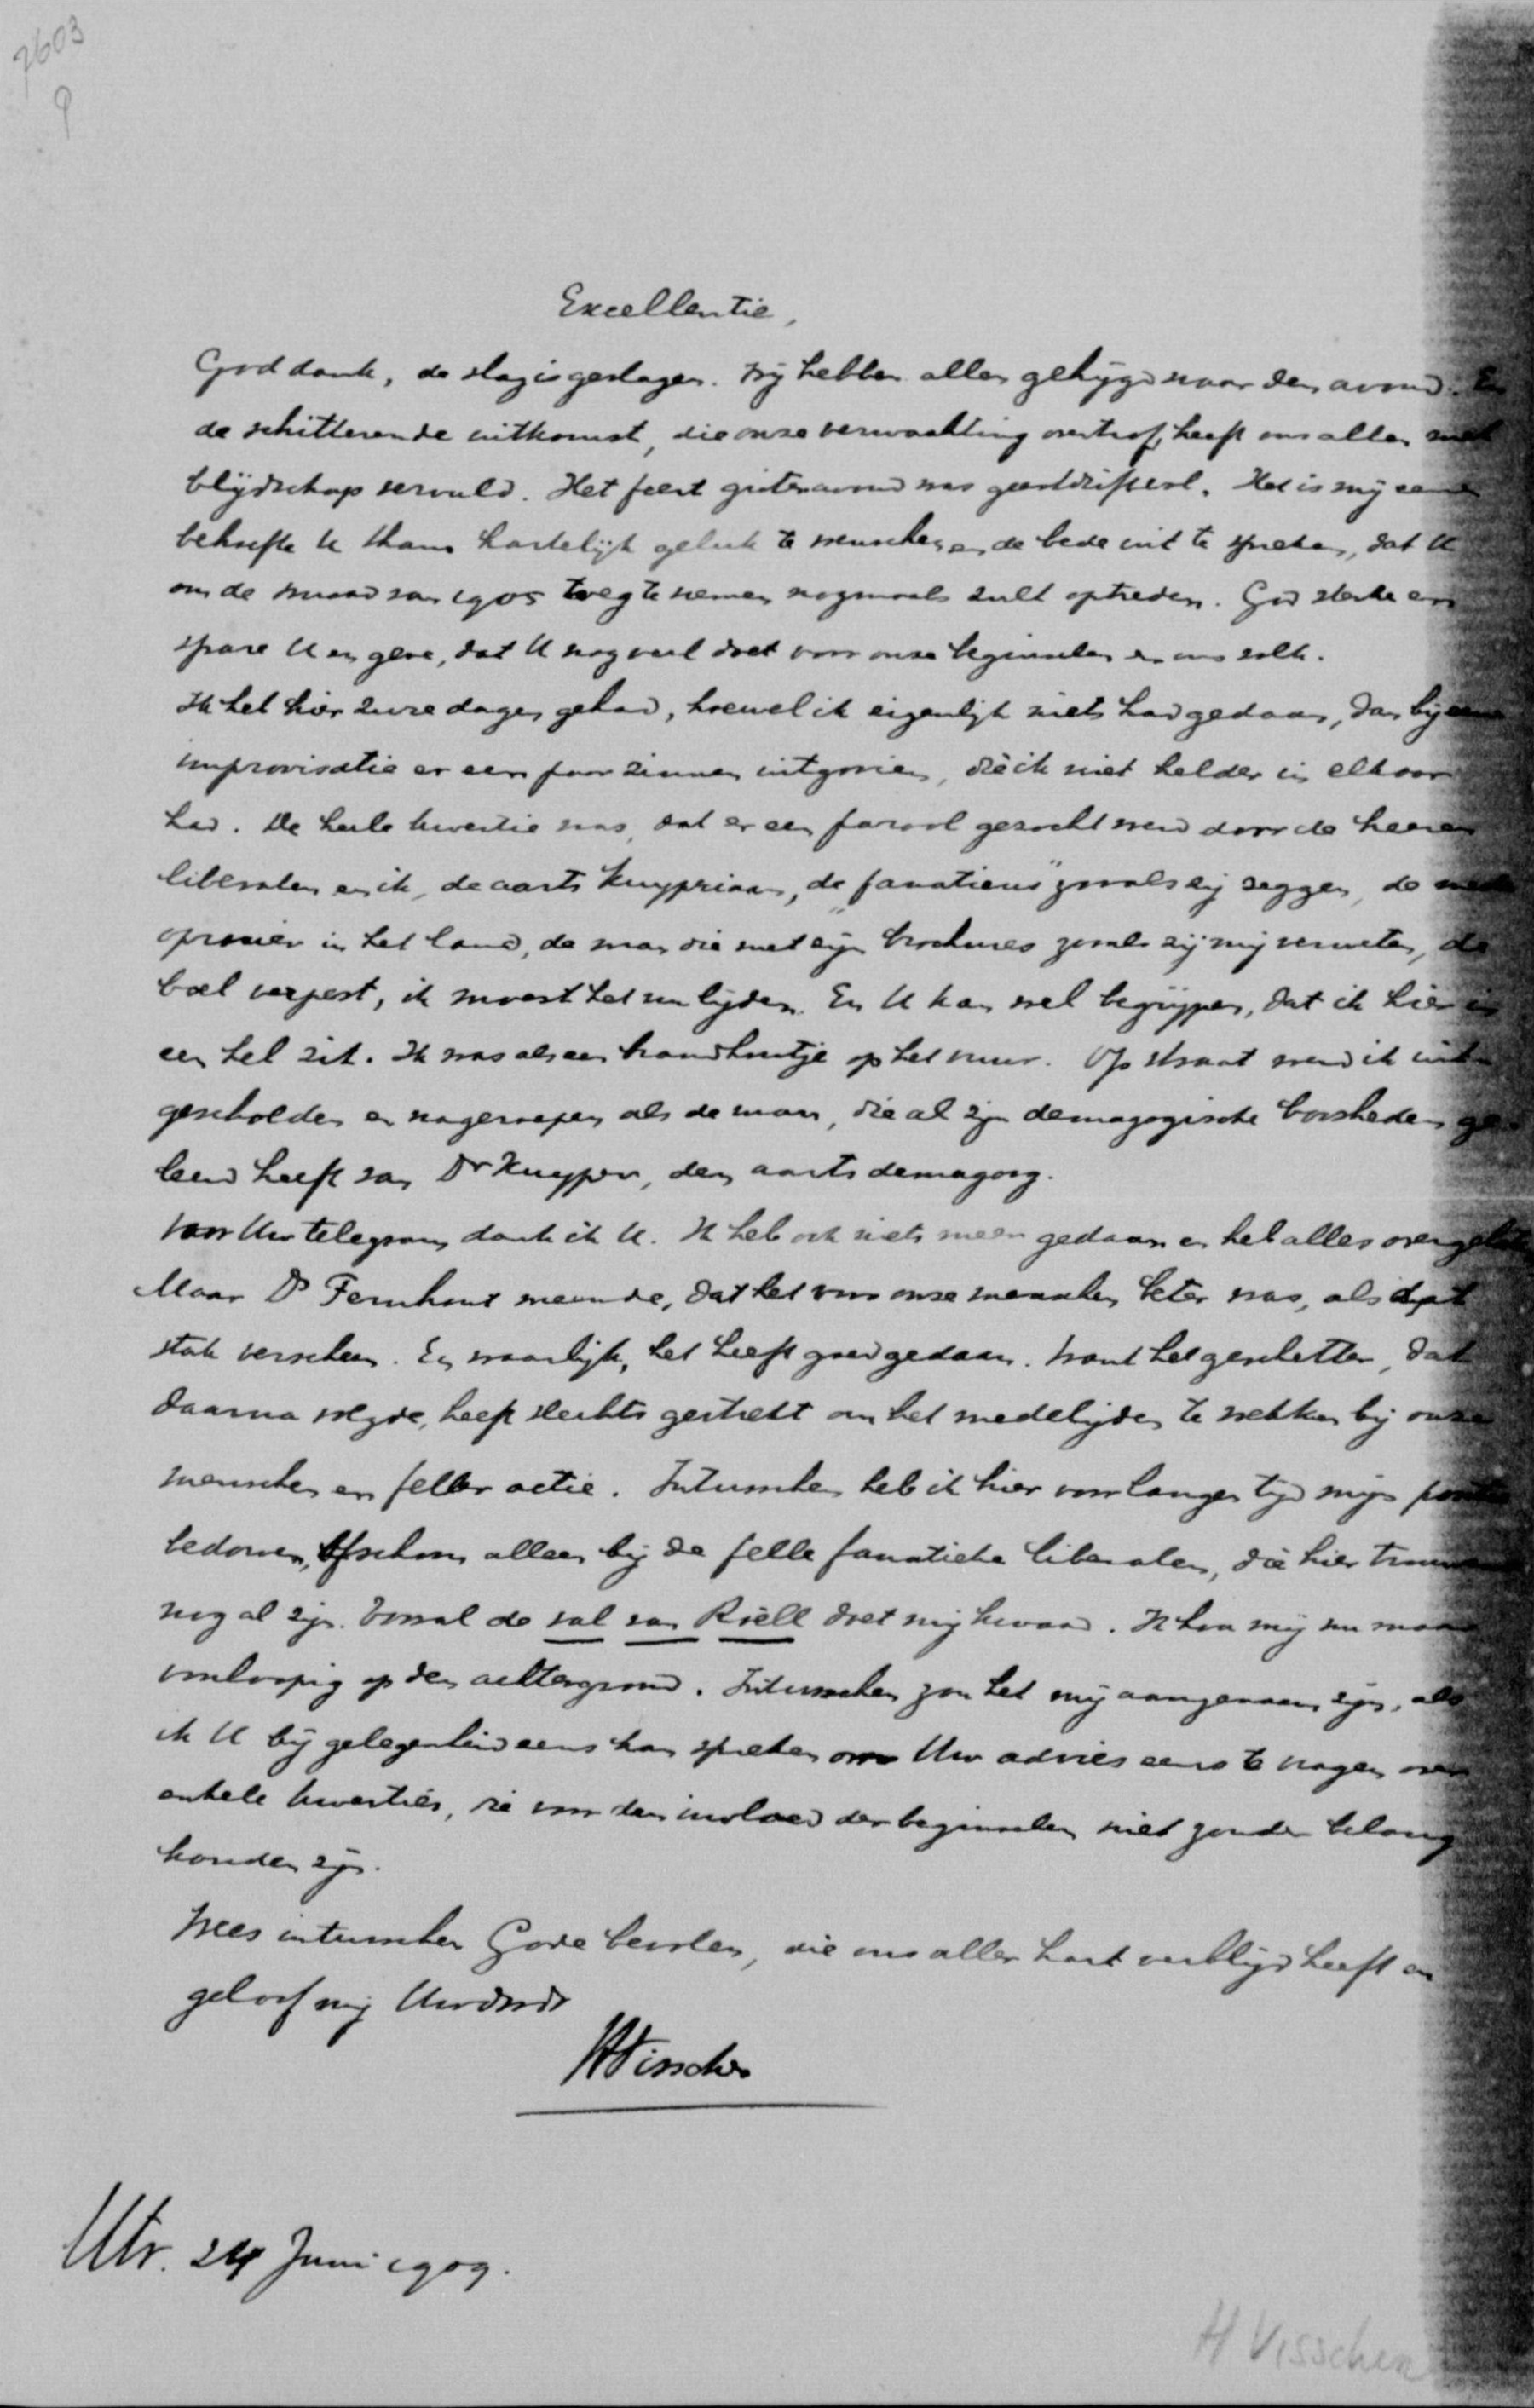 7603
9
Excellentie,
God dank, de slag is geslagen. Wij hebben allen gehijgd naar den avond. En
de schitterende uitkomst, die onze verwachting overtrof, heeft ons allen met
blijdschap vervuld. Het feest gisteravond was geestdriftvol. Het is mij eene
behoefte U thans hartelijk geluk te wenschen en de bede uit te spreken, dat U
om de smaad van 1905 weg te nemen nogmaals zult optreden. God sterke en
spare U en geve, dat U nog veel doet voor onze beginselen en ons volk.
Ik heb hier zware dagen gehad, hoewel ik eigenlijk niets had gedaan, dan bij eene
improvisatie er een paar zinnen uitgooien, die ik niet helder in elkaar
had. De heele kwestie was, dat er een parool gezocht werd door de heeren
liberalen en ik, de aarts Kuyperiaan, de "fanaticus" zooals zij zeggen, de
opruier in het land, de man die met zijn brochures zooals zij mij verweten, de
boel verpest, ik moest het nu lijden. En U kan wel begrijpen, dat ik hier in
een hel zit. Ik was als een brandhoutje op het vuur. Op straat werd ik uit-
gescholden en nageroepen als de man, die al zijn demagogische boosheden ge-
leerd heeft van Dr Kuyper, den aartsdemagoog.
Voor Uw telegram dank ik U. Ik heb ook niets meer gedaan en heb alles overgelaten
Maar Ds Fernhout meende, dat het voor onze menschen beter was, als dat
stuk verscheen. En waarlijk, het heeft goed gedaan. Want het geschetter, dat
daarna volgde, heeft slechts gestrekt om het medelijden te wekken bij onze
menschen en feller actie. Intusschen heb ik hier voor langen tijd mijn positie
bedorven, ofschoon alleen bij de felle fanatieke liberalen, die hier trouwens
nog al zijn. Vooral de val van Roëll doet mij kwaad. Ik hou mij nu maar
voorloopig op den achtergrond. Intusschen zou het mij aangenaam zijn, als
ik U bij gelegenheid eens kan spreken om Uw advies eens te vragen over
enkele kwesties, die voor den invloed der beginselen niet zonder belang
houden zijn.
Wees intusschen Gode bevolen, die ons aller hart verblijd heeft en
geloof mij Uwdwdr
HVisscher
Utr. 24 Juni 1909.
H Visscher